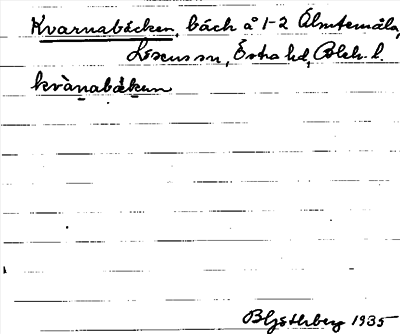 Kvarnabäcken, bäck å 1-2 Älmtemåla,
Lösens sn, Östra hd, Blek. l.
kvànabäken
1935